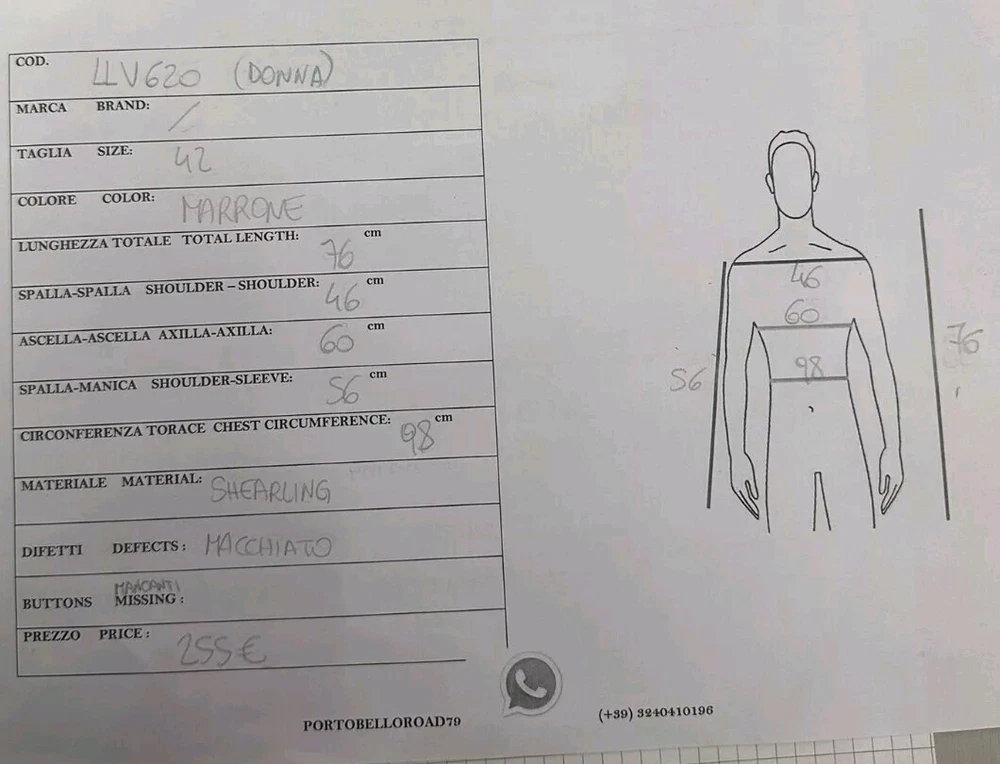 COD. LLV620 (DONNA)
MARCA BRAND: /
TAGLIA SIZE: 42
COLORE COLOR: MARRONE
LUNGHEZZA TOTALE TOTAL LENGTH: 76 cm
SPALLA-SPALLA SHOULDER – SHOULDER: 46 cm
ASCELLA-ASCELLA AXILLA-AXILLA: 60 cm
SPALLA-MANICA SHOULDER-SLEEVE: 56 cm
CIRCONFERENZA TORACE CHEST CIRCUMFERENCE: 98 cm
MATERIALE MATERIAL: SHEARLING
DIFETTI DEFECTS: MACCHIATO
MANCANTI
BUTTONS MISSING:
PREZZO PRICE: 255€
46
60
98
56
76
PORTOBELLOROAD79
(+39) 3240410196